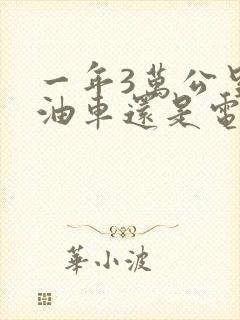 一年3萬公里
油車還是電
華小波